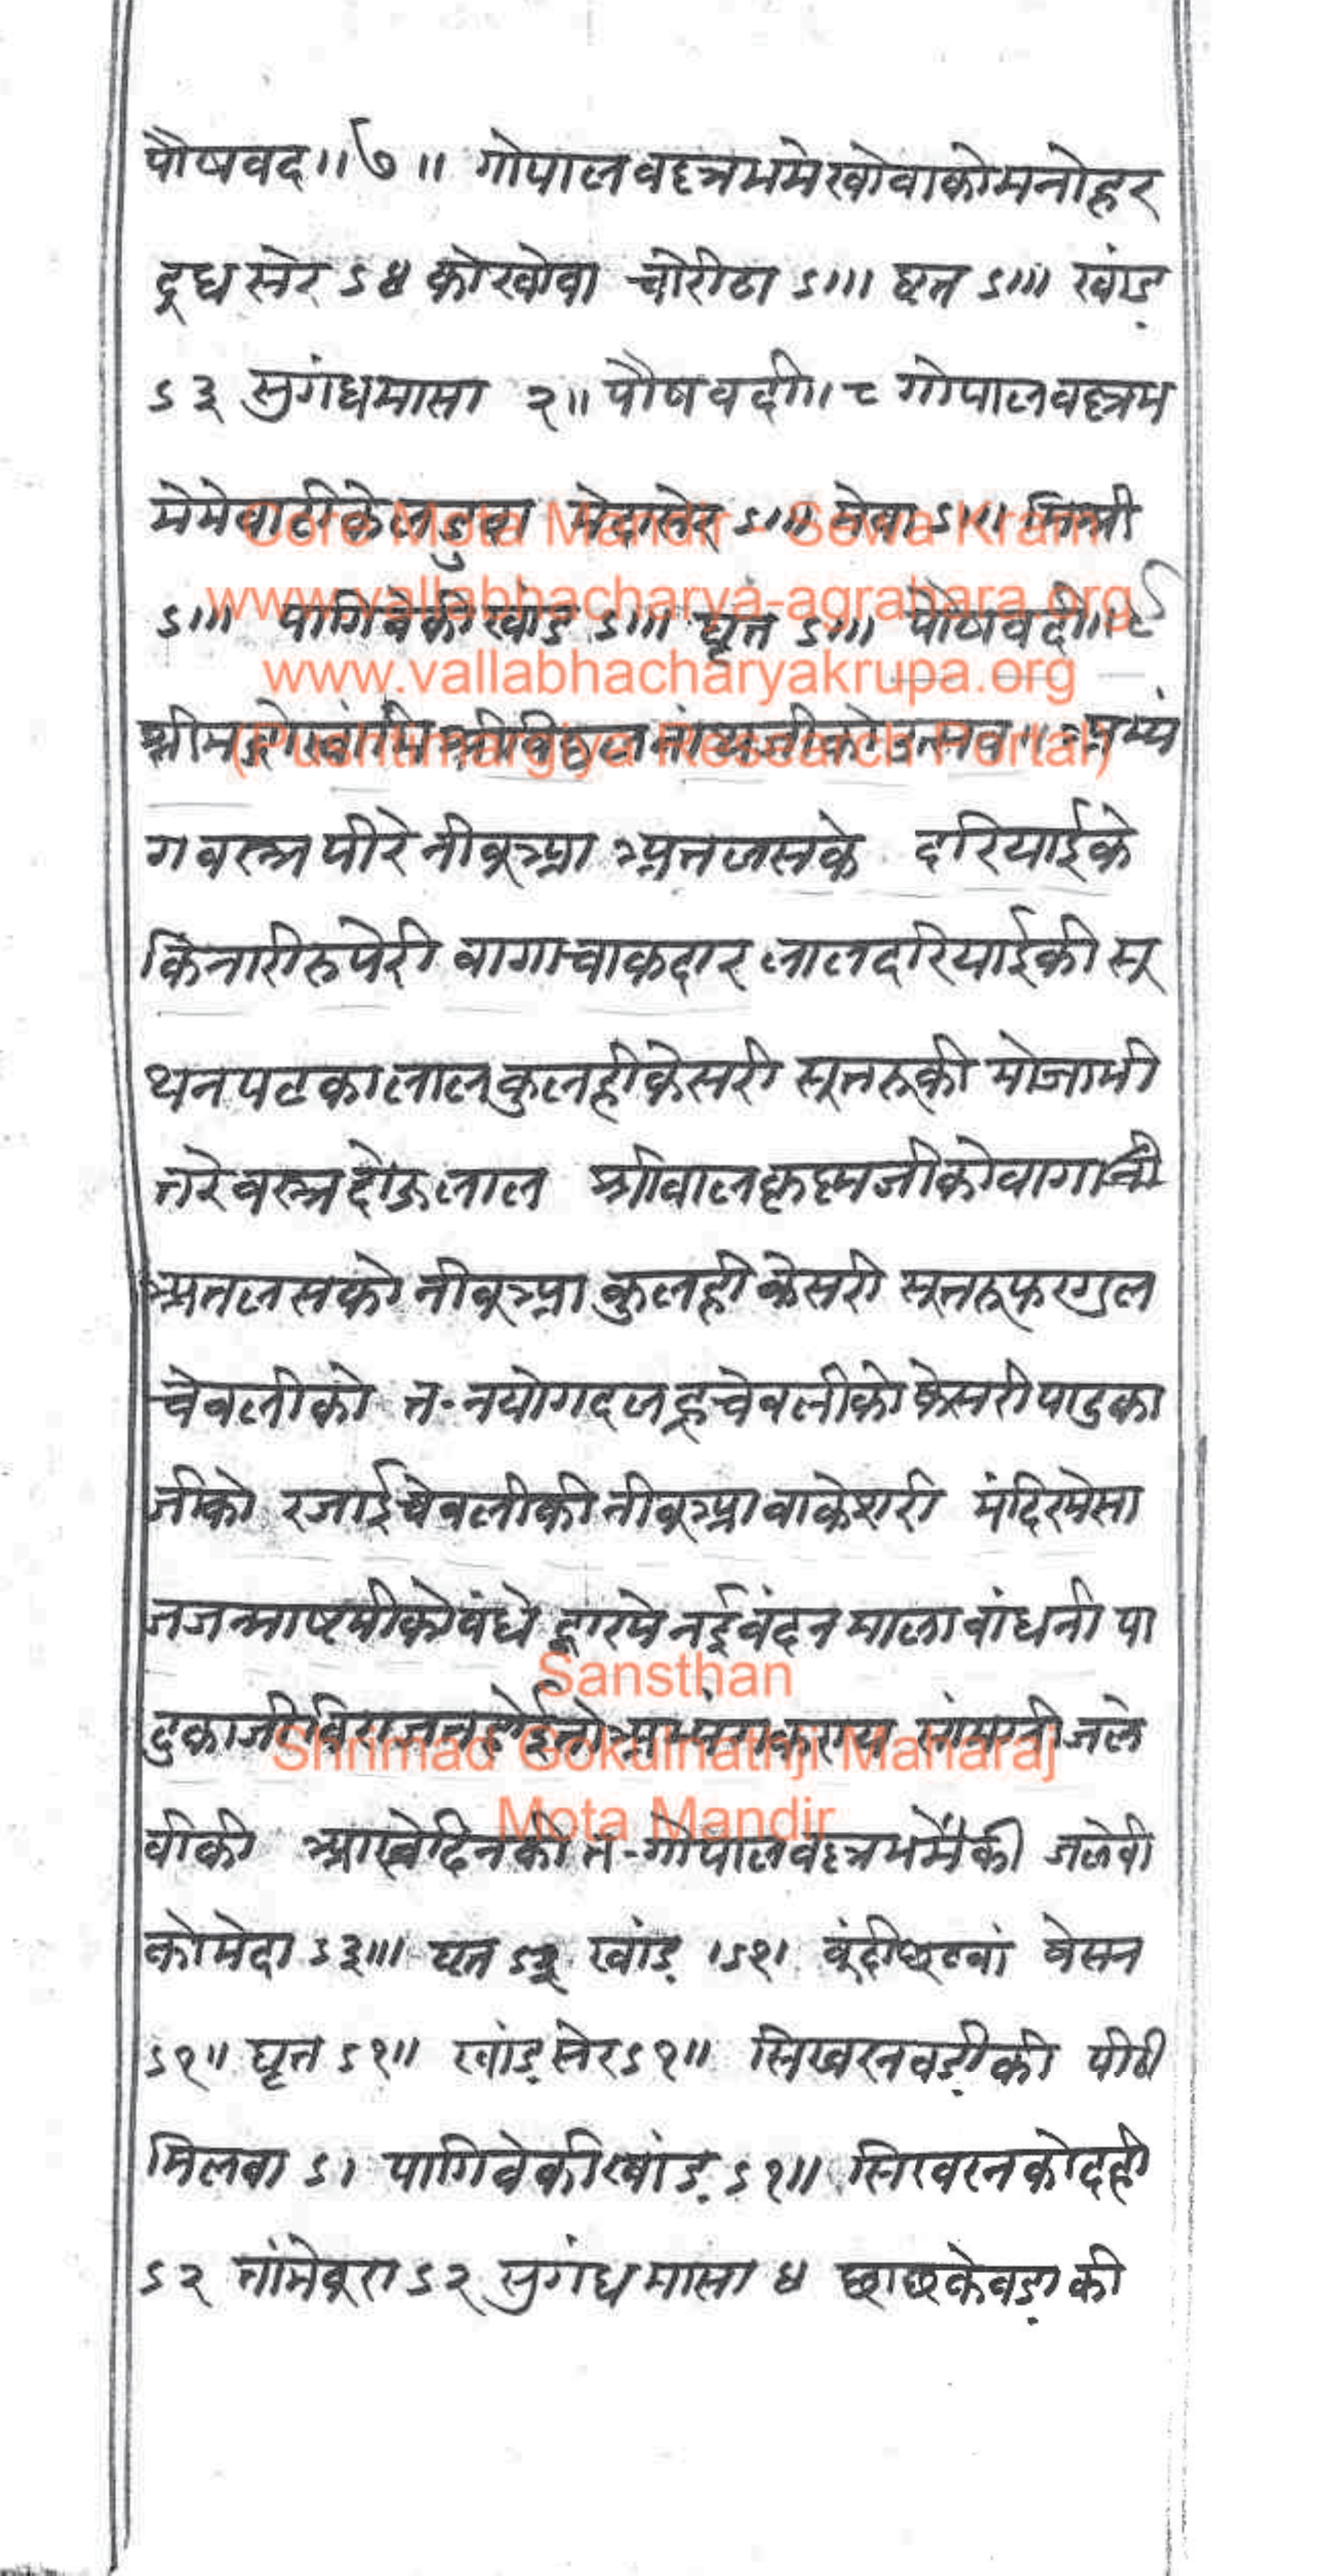 पौषवद॥७॥ गोपालवल्लभमेखोवाकोमनोहर
दूधसेर ऽ४ कोखोवा चोरीठा ऽ॥। घृत ऽ॥। खांड़
ऽ३ सुगंधमासा २॥ पौषवदी॥८ गोपालवल्लभ
मेमेवाटीकेलडुवा मेदासेर ऽ॥। मेवा ऽ॥। मिश्री
ऽ॥। पागिवेकीखांड ऽ॥। घृत ऽ॥। पौषवदी॥९
श्रीमद्गोस्वांमिश्रीविठ्ठलनांथजीकोउत्सव॥ अभ्यं
गवस्त्रपीरेनीबूआ अतलसके दरियाईके
किनारीरुपेरी वागाचाकदार लालदरियाईकीसू
थनपटकालालकुलहीकेसरी सूतरूकी मोजामी
तरेवस्त्रदोऊलाल श्रीबालकृष्णजीकोवागाभी
अतलसको नीबूआ कुलहीकेसरी सूतरूफरगुल
चेवलीको त-नयोगदलहचेवलीकोकेसरीपादुका
जीको रजाईचेवलीकीनीबूआवाकेशरी मंदिरमेसा
जजन्माष्टमीकोबंधे द्वारमेनईवंदनमालाबांधनीपा
दुकाजीविराजतहोईतोअभ्यंगकराय सांमग्रीजले
बीकी आखेदिनकीत-गोपालवल्लभमेंकी जलेबी
कोमेदा ऽ३॥। घृत ऽ३ खांड़ ।ऽ१। बूंदीछूटवां बेसन
ऽ१॥ घृत ऽ१॥ खांड़सेरऽ१॥ सिखरनवड़ीकी पीठी
मिलवा ऽ। पागिवेकीखांड़ ऽ१॥ सिखरनकोदही
ऽ२ तांमेबूरा ऽ२ सुगंधमासा ४ छाछकेवड़ाकी
Core Mota Mandir - Sewa Kram
www.vallabhacharya-agrahara.org
www.vallabhacharyakrupa.org
(Pushtimargiya Research Portal)
Sansthan
Shrimad Gokulnathji Maharaj
Mota Mandir